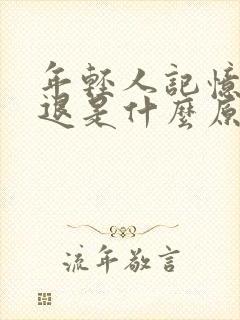 年輕人記憶
退是什麼原
流年敬言